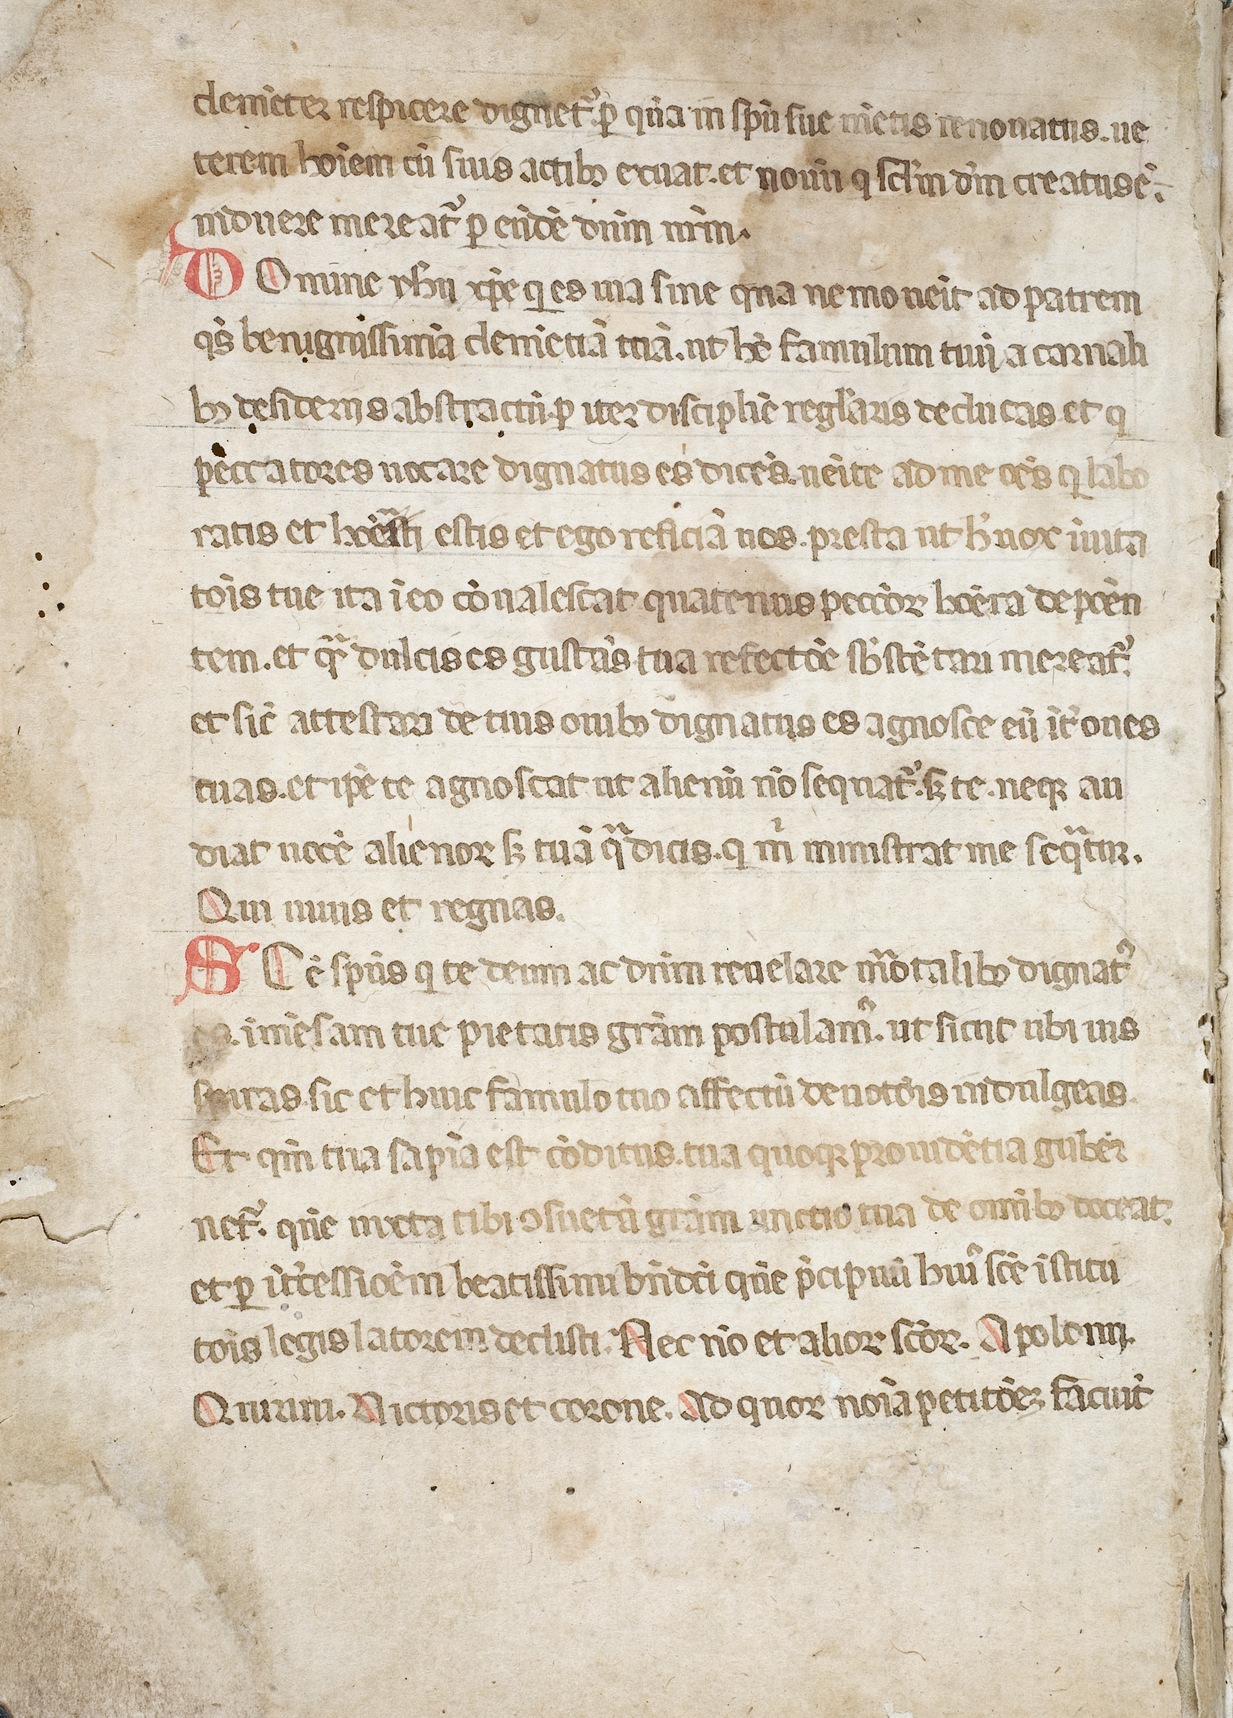 clem̄eter respicere dignet᷑. ꝑ q̄na in spū sue m̄etis renouatus. ue
terem hoīem cū suis actibꝫ exuat. et nouū q̄ scd̄m dm̄ creatus ē.
induere mereat᷑ ꝑ eūdē dnm̄ nrm̄.
DOmine yhū xp̄e qi es uia sine qua nemo ueīt ad patrem
qs̄ benignissimā clem̄etiā tuā. ut hc̄ famulum tuū a carnali
bꝫ desiderijs abstractū. ꝑ iter discipliē regl̄aris deducas. et q
peccatores uocare dignatus es dicēs. ueīte ad me oēs qi labo
ratis et hoēāti estis et ego reficiā uos. presta ut h̄ uox īuita
tōis tue ita ī eo cōualescat quatenus peccōꝝ hoēra depōēn
tem. et qᷓ dulcis es gustās tua refectōe sb̄stētari mereat᷑.
et sic̄ attestari de tuis ouibꝫ dignatus es agnosce eū īt̄ oues
tuas. et ip̄e te agnoscat ut alienū nō sequat᷑. sꝫ te. neqꝫ au
diat uocē alienoꝝ sꝫ tuā qᷓ dicis. qi m̄ ministrat me seqᷓtur.
Qui uiuis et regnas.
SCē sp̄us q te deum ac dnm̄ reuelare m̄otalibꝫ dignat᷑
es. īmēsam tue pietatis grām postulam᷑. ut sicut ubi uis
spiras. sic et huic famulo tuo affectū deuotōis indulgeas.
Et qm̄ tua sapīa est cōditus. tua quoqꝫ prouidētia guber
net᷑. quē iuxta tibi ꝯsuetā grām unctio tua de omībꝫ doceat.
et ꝑ īt̄cessioēm beatissimi bn̄dc̄i quē p̄cipuū huī᷑ scē īstitu
tōis legislatorem dedisti. Nec nō et alioꝝ scōꝝ. Apolonij.
Quirini. Victoris et corone. Ad quoꝝ noīa petitōeꝫ faciūt